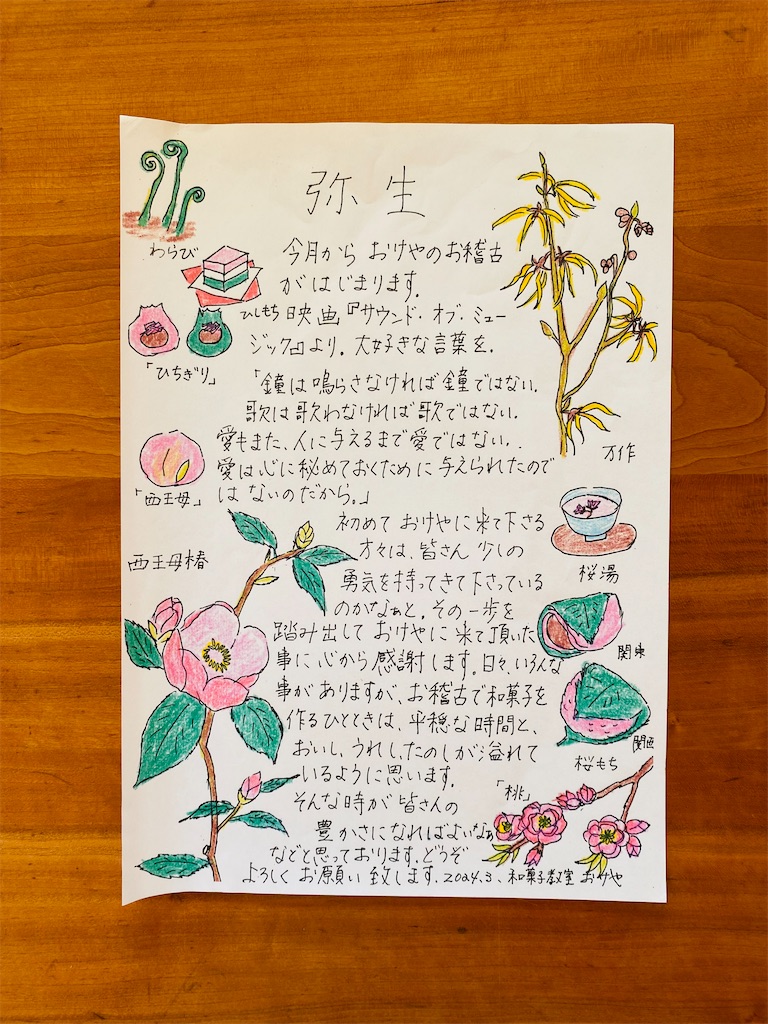 弥生
わらび
今月から おけやのお稽古
がはじまります。
ひしもち
映画『サウンド・オブ・ミュー
ジック』より。大好きな言葉を。
「ひちぎり」
「鐘は鳴らさなければ鐘ではない。
歌は歌わなければ歌ではない。
愛もまた、人に与えるまで愛ではない。.
愛は心に秘めておくために与えられたので
はないのだから。」
万作
「西王母」
初めて おけやに来て下さる
方々は、皆さん 少しの
勇気を持ってきて下さっている
のかなぁと。その一歩を
踏み出して おけやに来て頂いた
事に心から感謝します。日々、いろんな
事がありますが、お稽古で和菓子を
作るひとときは、平穏な時間と、
おいし、うれし、たのしが溢れて
いるように思います。
そんな時が皆さんの
豊かさになればよいなぁ
などと思っております。どうぞ
よろしく お願い 致します。2024.3、和菓子教室 おけや
西王母椿
桜湯
関東
関西
桜もち
「桃」